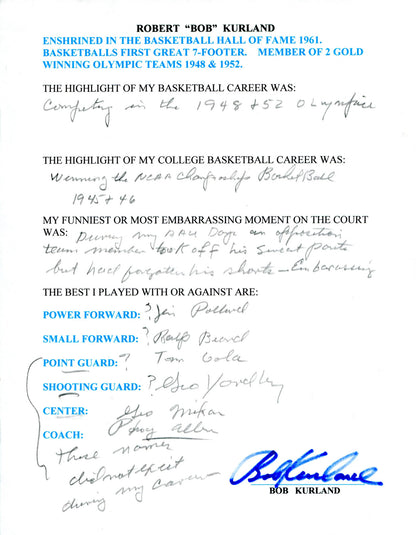 ROBERT "BOB" KURLAND
ENSHRINED IN THE BASKETBALL HALL OF FAME 1961.
BASKETBALLS FIRST GREAT 7-FOOTER. MEMBER OF 2 GOLD
WINNING OLYMPIC TEAMS 1948 & 1952.
THE HIGHLIGHT OF MY BASKETBALL CAREER WAS:
Competing in the 1948 & 52 Olympics
THE HIGHLIGHT OF MY COLLEGE BASKETBALL CAREER WAS:
Winning the NCAA Championships BasketBall
1945 & 46
MY FUNNIEST OR MOST EMBARRASSING MOMENT ON THE COURT
WAS: During my AAU Days an opposition
team member took off his sweat pants
but had forgotten his shorts - Embarrassing
THE BEST I PLAYED WITH OR AGAINST ARE:
POWER FORWARD: ? Jim Pollard
SMALL FORWARD: ? Ralf Beard
POINT GUARD: ? Tom Gola
SHOOTING GUARD: ? Geo Yardley
CENTER: Geo Mikan
COACH: Phog Allen
These names
did not exist
during my career
Bob Kurland
BOB KURLAND